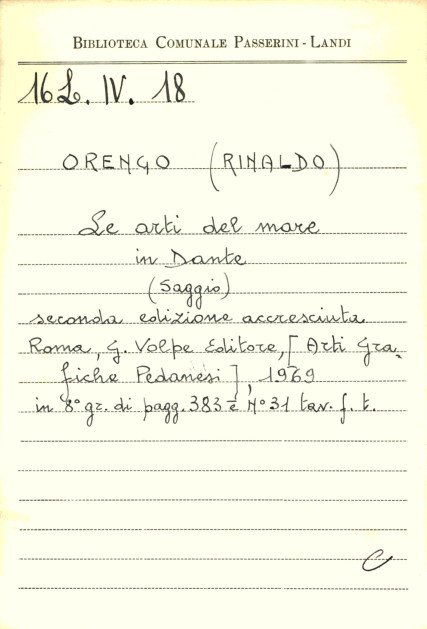 BIBLIOTECA COMUNALE PASSERINI - LANDI
16 L. IV. 18
ORENGO (RINALDO)
Le arti del mare
in Dante
(Saggio)
seconda edizione accresciuta
Roma, G. Volpe Editore, [Arti Gra-
fiche Pedanesi], 1969
in 8° gr. di pagg. 383 e N° 31 tav. f. t.
C